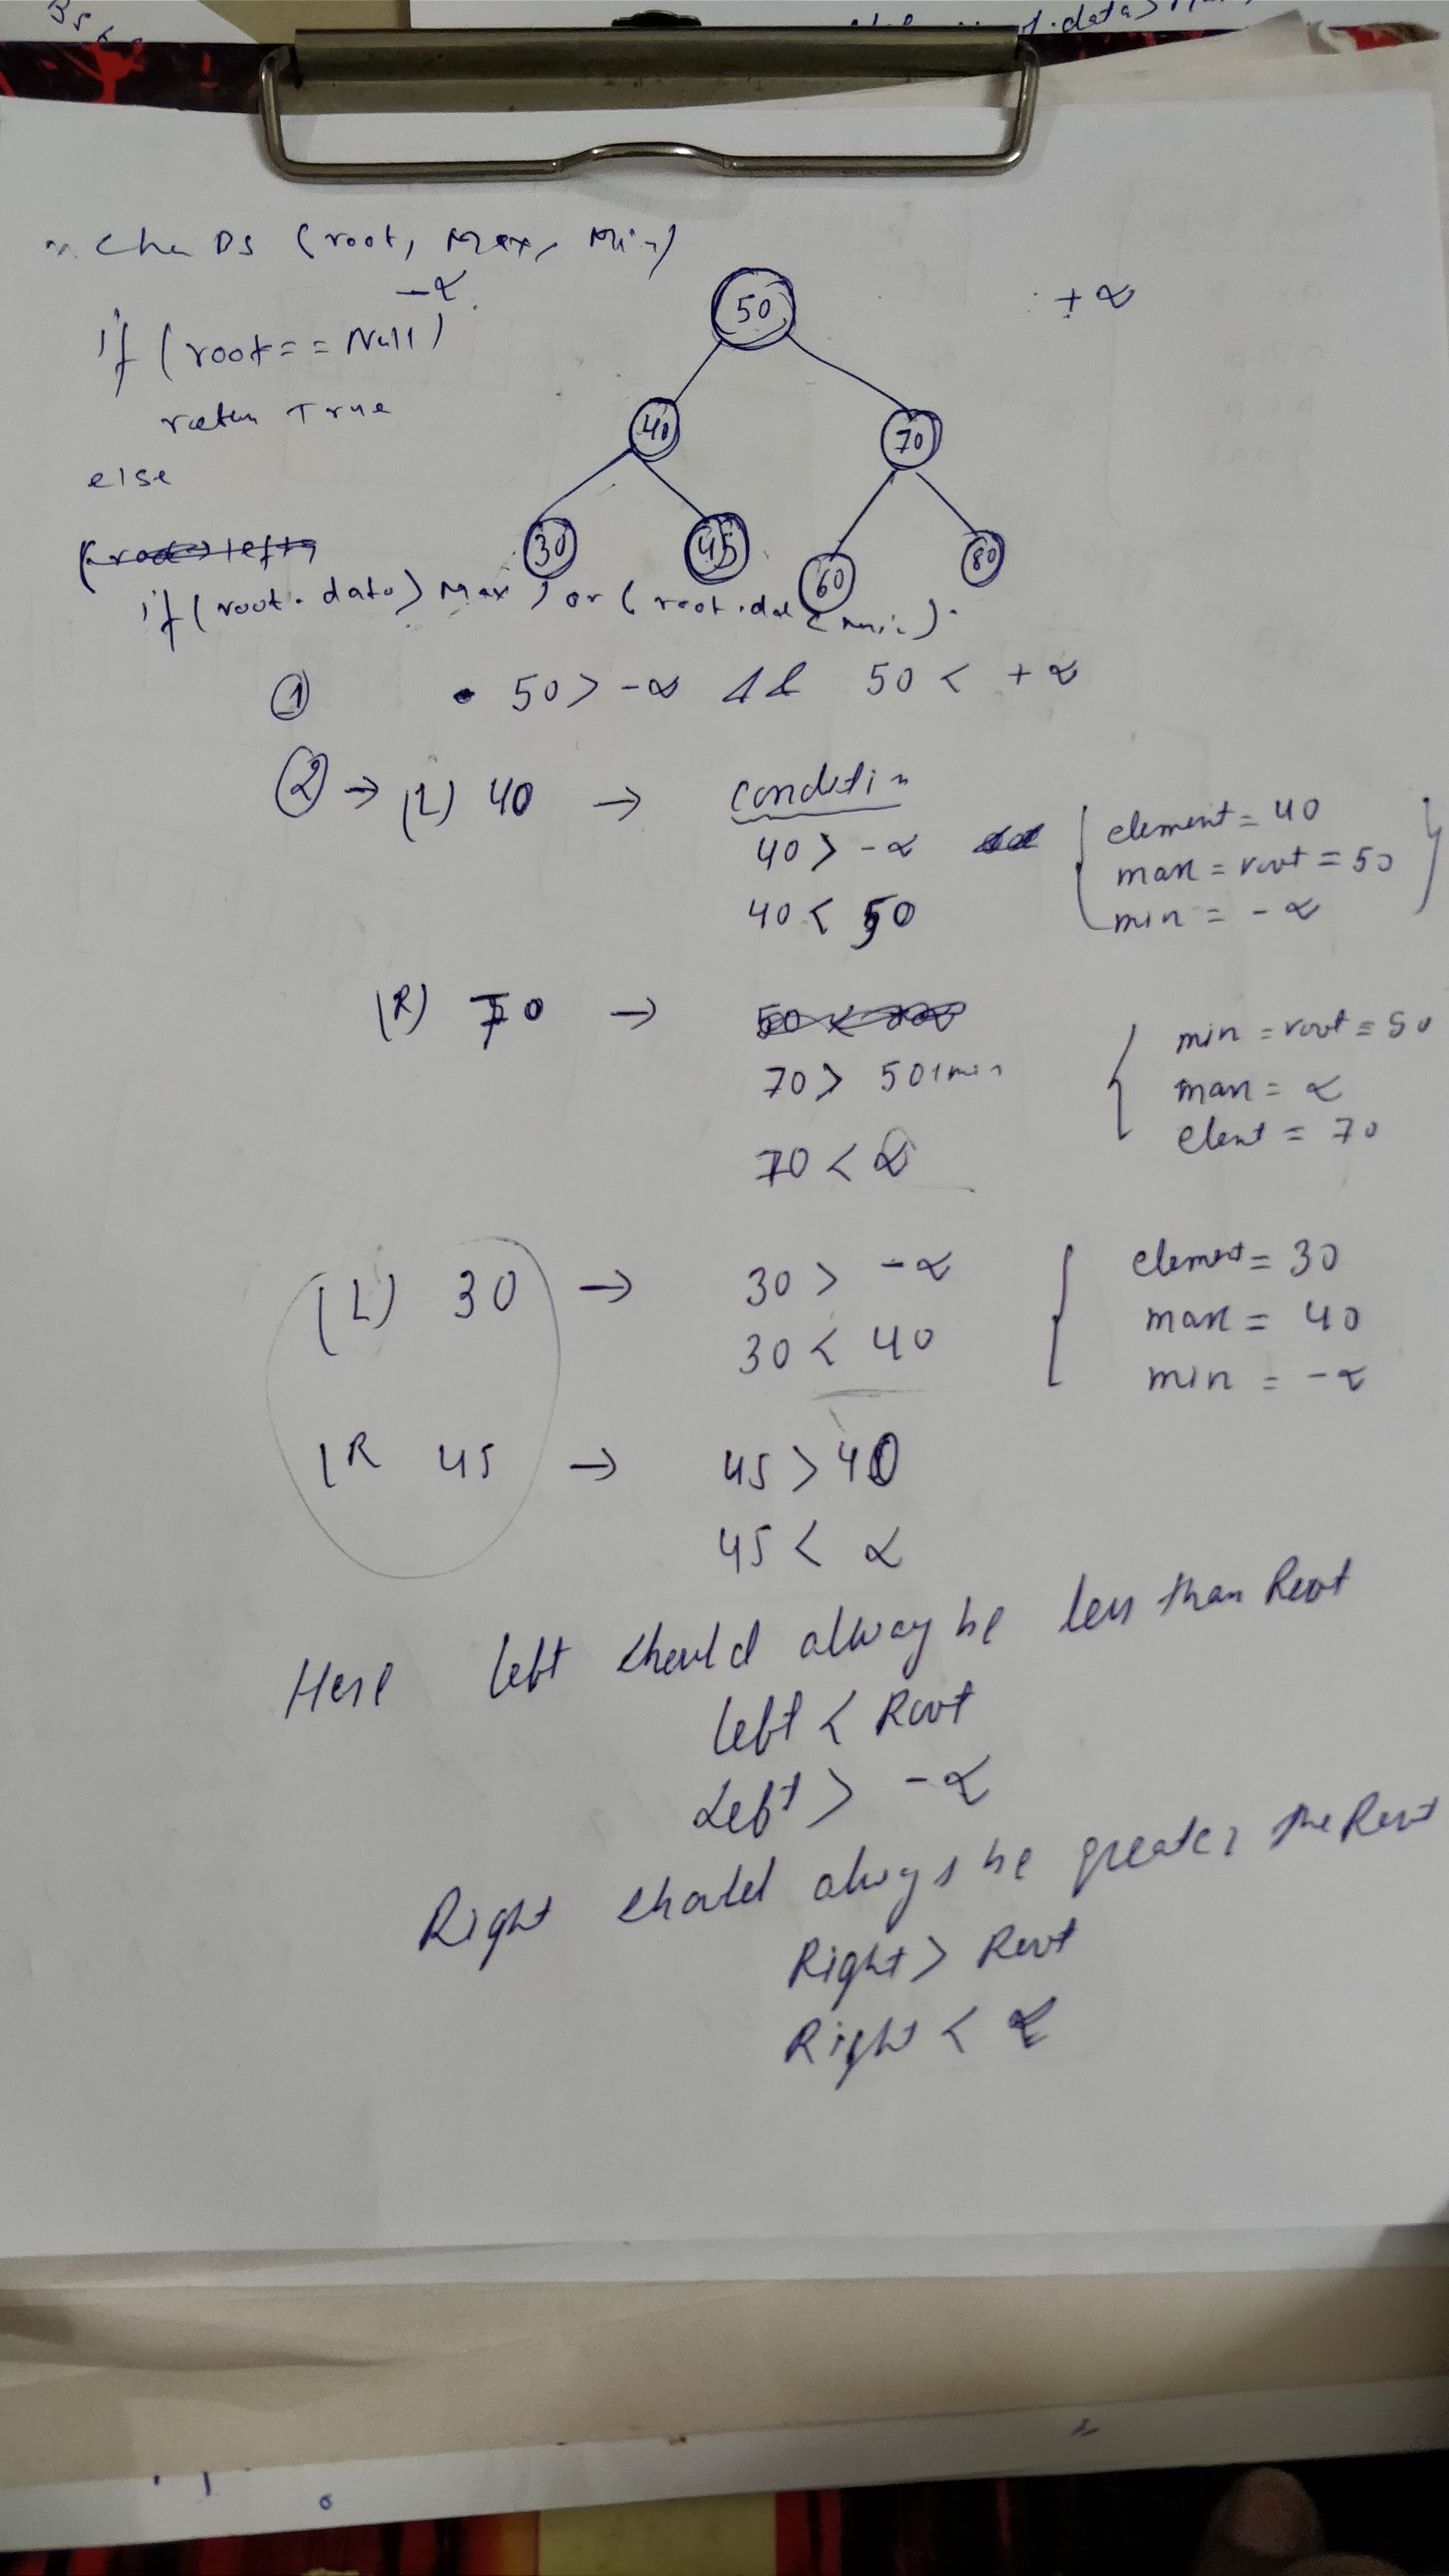 (root, Max, Min)
-∝
+∝
if (root == Null)
return True
else
50
40
70
30
45
60
80
if (root. data > Max) or (root.dat < min)
① 50 > -∝ && 50 < +∝
② → (L) 40 → condition
40 > -∝
40 < 50
element = 40
max = root = 50
min = -∝
(R) 70 →
70 > 50 (min
70 < ∝
min = root = 50
max = ∝
elent = 70
(L) 30 → 30 > -∝
30 < 40
element = 30
max = 40
min = -∝
(R 45 → 45 > 40
45 < ∝
Here left should alway be less than Root
left < Root
Left > -∝
Right should always be greater the Root
Right > Root
Right < ∝